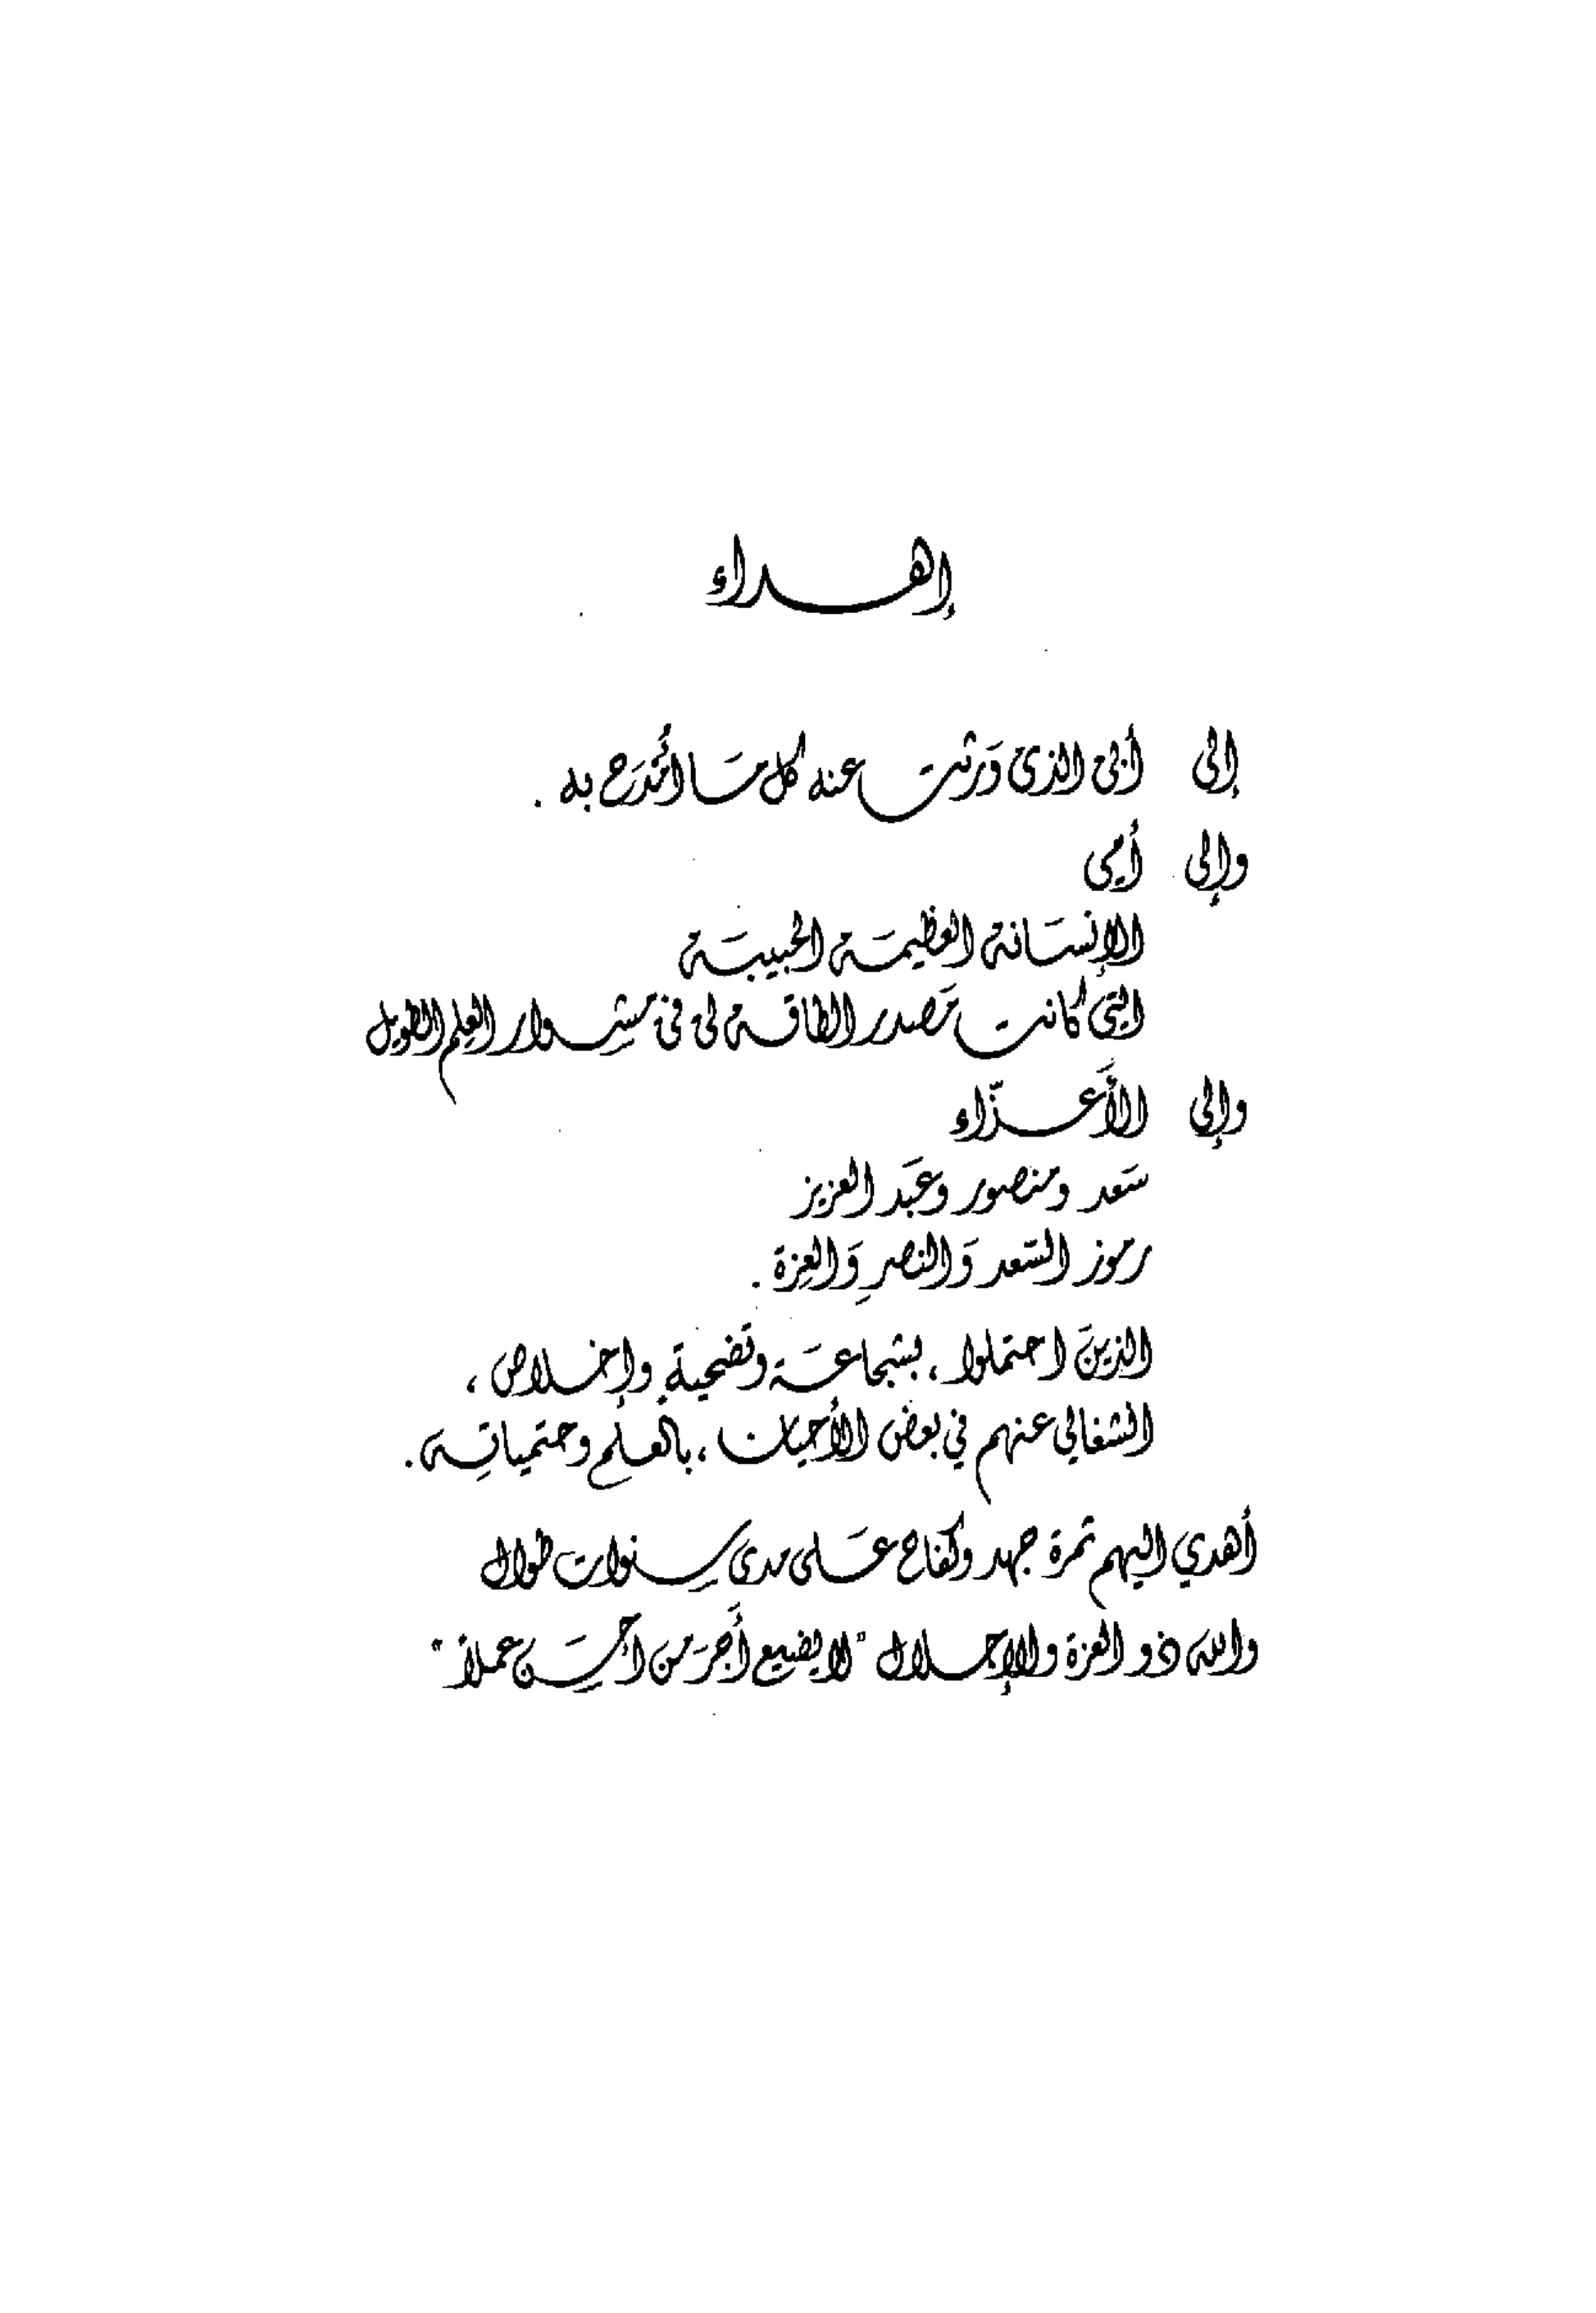 إهداء
إلى أبى الذى وَرثت عنه كل مَا أُمْدَح به .
وإلى أمى
الإنسَانة العظيمَة الحبيبَة
التى كانت مَصدر الطاقة لى فى مشِوار العِلم الطويل
وإلى الأَعزّاء
سَعد ومنصور وعَبد العزيز
رموز السَّعد وَالنصرِ وَالعِزة .
الذينَ احتملوا ، بشجاعَة وتضحيةٍ وإخلاص ،
انشغالي عنهم في بعض الأحيان ، بالعلم وحتمياتِه .
أهدي اليهم ثمرة جهد وكفاح عَلى مدى سِنوات طوال
والله ذو العزة والإجلال "لا يضيع أَجرَ مَن أحسَن عملاً"